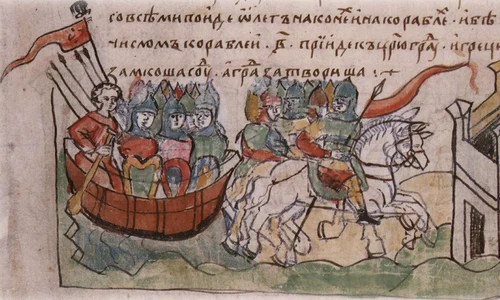 совсѣми поиде ѡлегъ на конеⷯ и на кораблеⷯ. и бѣ
числомъ кораблеи ҂в҃. прїиде къ цр҃юграⷣ. и греци
замкоша соуⷣ. а граⷣ затвориша :+